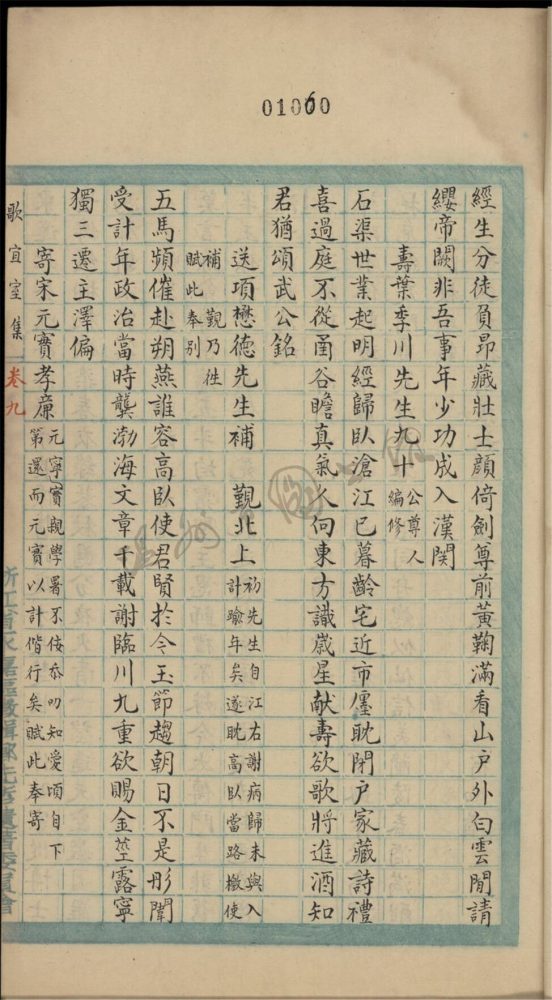 01060
經生分徒負昂藏壯士顔倚劍尊前黄鞠滿看山户外白雲閒請
纓帝闕非吾事年少功成入漢関
壽葉季川先生九十公尊人編修
石渠世業起明經歸臥滄江已暮齡宅近市廛耽閉户家藏詩禮
喜過庭不從凾谷瞻真氣人向東方識嵗星献壽欲歌將進酒知
君猶頌武公銘
送項懋德先生補 覲北上初先生自江右謝病歸未與入計踰年矣遂耽高臥當路檄使
補覲乃徃賦此奉别
五馬頻催赴朔燕誰容高臥使君賢於今玉節趨朝日不是彤闈
受計年政治當時龔渤海文章千載謝臨川九重欲賜金莖露寧
獨三遷主澤偏
寄宋元實孝廉元實親學署不佞忝叨知愛頃自下第還而元實以計偕行矣賦此奉寄
歌宜室集 卷九